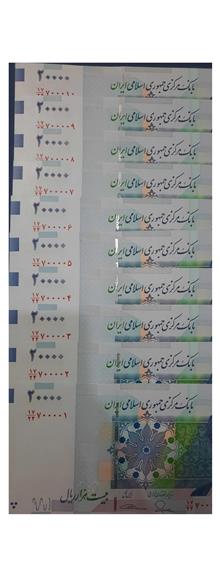 ۲۰۰۰۰
بانک مرکزی جمهوری اسلامی ایران
۷۰۰۰۱۰
۲۰۰۰۰
بانک مرکزی جمهوری اسلامی ایران
۷۰۰۰۰۹
۲۰۰۰۰
بانک مرکزی جمهوری اسلامی ایران
۷۰۰۰۰۸
۲۰۰۰۰
بانک مرکزی جمهوری اسلامی ایران
۷۰۰۰۰۷
۲۰۰۰۰
بانک مرکزی جمهوری اسلامی ایران
۷۰۰۰۰۶
۲۰۰۰۰
بانک مرکزی جمهوری اسلامی ایران
۷۰۰۰۰۵
۲۰۰۰۰
بانک مرکزی جمهوری اسلامی ایران
۷۰۰۰۰۴
۲۰۰۰۰
بانک مرکزی جمهوری اسلامی ایران
۷۰۰۰۰۳
۲۰۰۰۰
بانک مرکزی جمهوری اسلامی ایران
۷۰۰۰۰۲
۲۰۰۰۰
بانک مرکزی جمهوری اسلامی ایران
۷۰۰۰۰۱
بیست هزار ریال